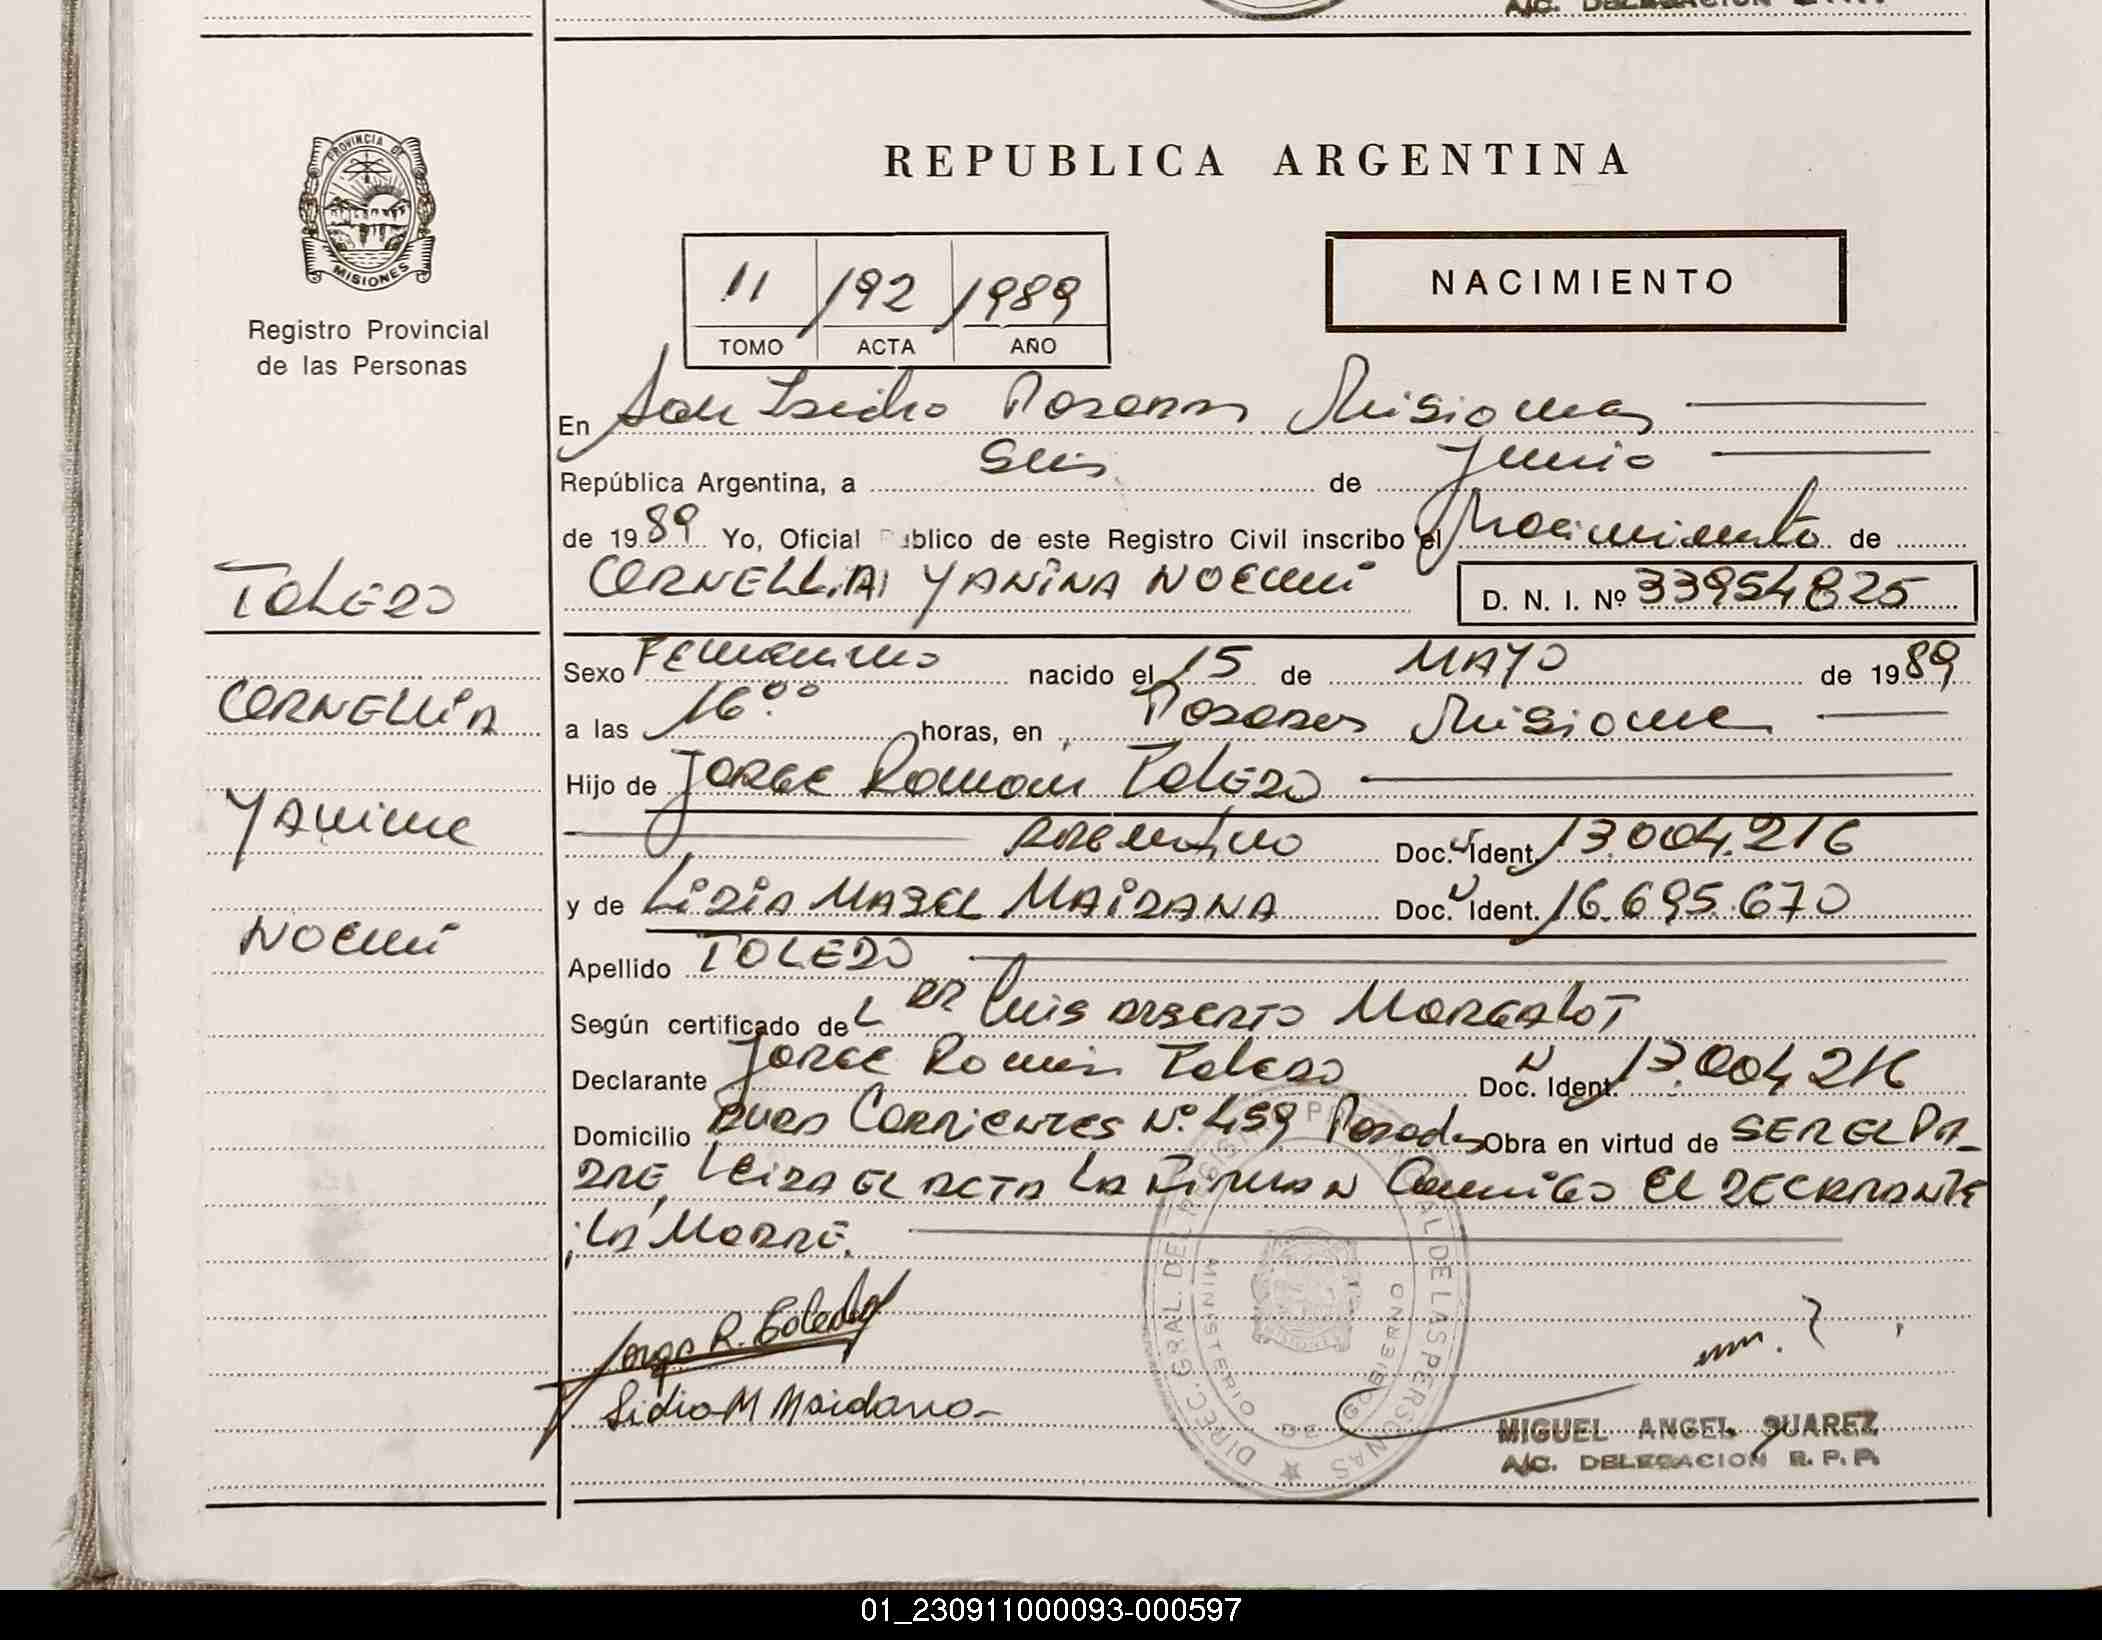 A/C. DELEGACION
PROVINCIA DE
MISIONES
Registro Provincial
de las Personas
REPUBLICA ARGENTINA
11 /192 /1989
TOMO ACTA AÑO
NACIMIENTO
En San Isidro Posadas Misiones
República Argentina, a Seis de Junio
de 1989 Yo, Oficial Público de este Registro Civil inscribo el Nacimiento de
CORNELLIA YANINA NOEMI D. N. I. Nº 33954825
TOLEDO
CORNELLIA
YANINA
NOEMI
Sexo Femenino nacido el 15 de MAYO de 1989
a las 16.00 horas, en Posadas Misiones
Hijo de Jorge Roman Toledo
Argentino Doc. Ident. 13.004.216
y de LiDiA MABEL MAiDANA Doc. Ident. 16.695.670
Apellido TOLEDO
Según certificado de L DR Luis Alberto
Declarante Jorge Roman Toledo Doc. Ident. 13.004.216
Domicilio Corrientes Nº 459 Posadas Obra en virtud de SER EL PA-
DRE, LEiDA EL ACTA LA FiRMAN Conmigo EL DECLARANTE
Y LA MADRE.
Jorge R. Toledo
Lidia M Maidana
DIREC. GRAL. DEL REGISTRO PROVINCIAL DE LAS PERSONAS
MINISTERIO DE GOBIERNO
MIGUEL ANGEL SUAREZ
A/C. DELEGACION R. P. P.
01_230911000093-000597